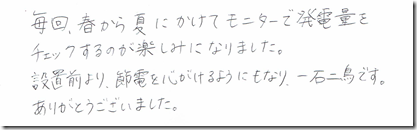 毎回、春から夏にかけてモニターで発電量を
チェックするのが楽しみになりました。
設置前より、節電を心がけるようにもなり、一石二鳥です。
ありがとうございました。